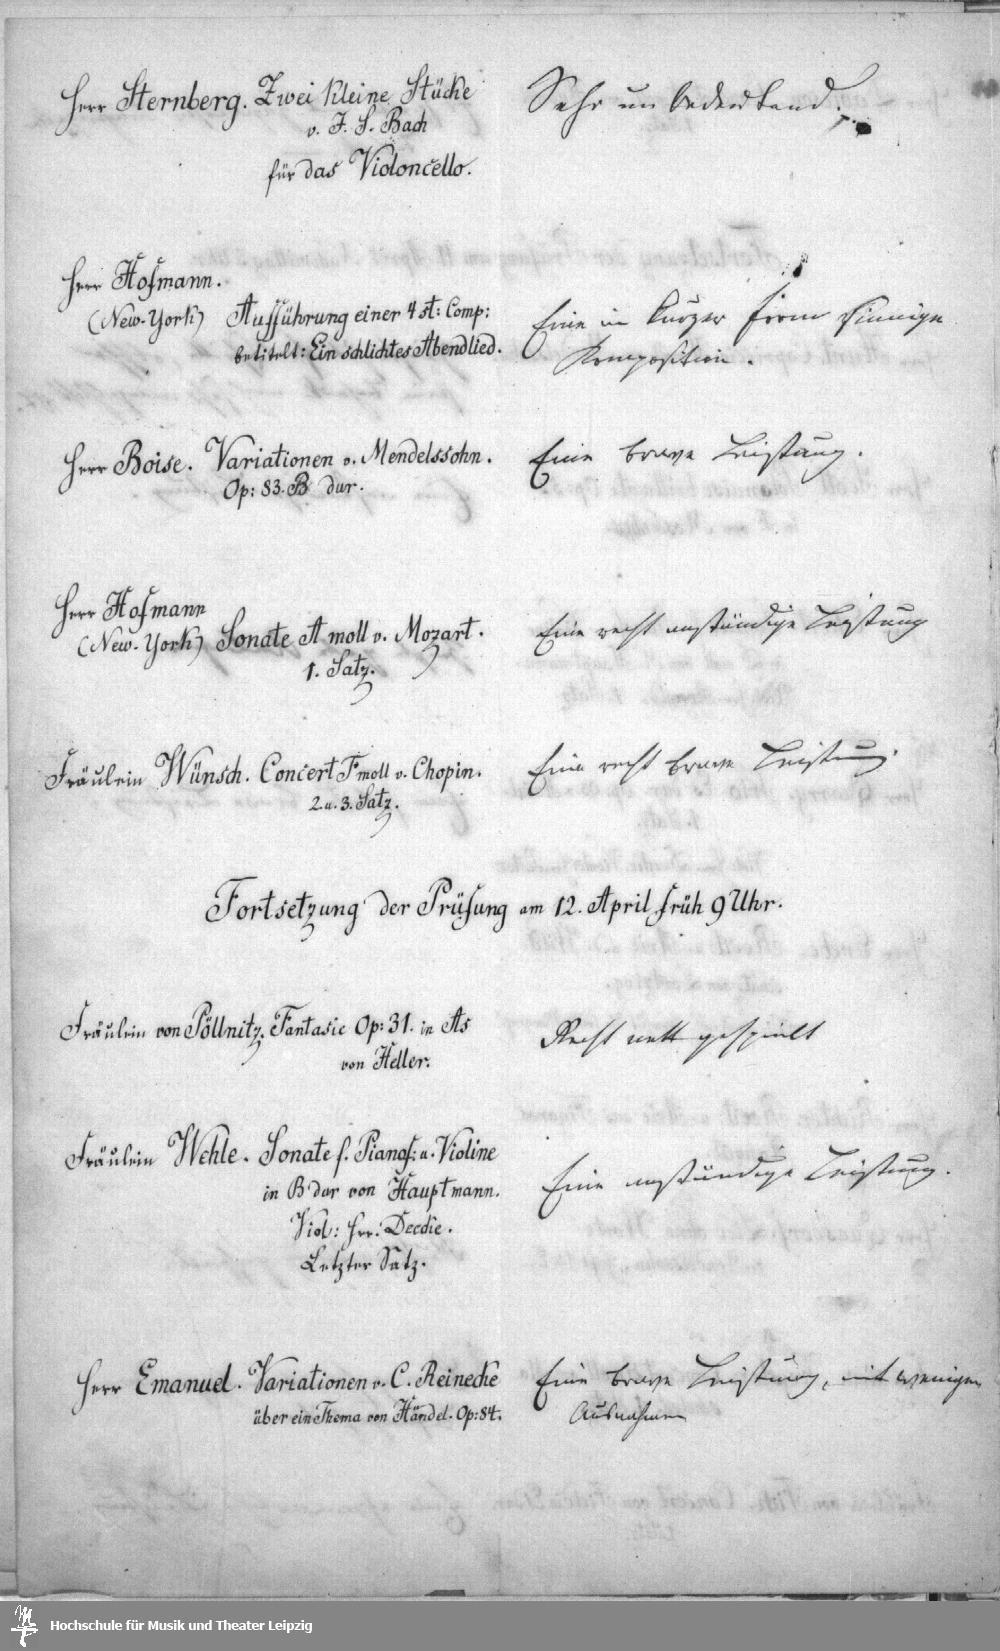 Herr Sternberg. Zwei kleine Stücke
v. J. S. Bach
für das Violoncello.
Sehr unbedeutend.
Herr Hofmann.
(New-York) Aufführung einer 4 st: Comp:
betitelt: Ein schlichtes Abendlied.
Eine in kurzer Form sinnige
Komposition.
Herr Boise. Variationen v. Mendelssohn.
Op: 83. B dur.
Eine brave Leistung.
Herr Hofmann
(New-York) Sonate A moll v. Mozart.
1. Satz.
Eine recht anständige Leistung
Fräulein Wünsch. Concert F moll v. Chopin.
2. u. 3. Satz.
Eine recht brave Leistung.
Fortsetzung der Prüfung am 12. April früh 9 Uhr.
Fräulein von Pöllnitz. Fantasie Op: 31. in As
von Heller.
Recht nett gespielt
Fräulein Wehle. Sonate f. Pianof: u. Violine
in B dur von Hauptmann.
Viol: Hrr: Decdie.
Letzter Satz.
Eine anständige Leistung.
Herr Emanuel. Variationen v. C. Reinecke
über ein Thema von Händel. Op: 84.
Eine brave Leistung, mit wenigen
Ausnahmen
Hochschule für Musik und Theater Leipzig